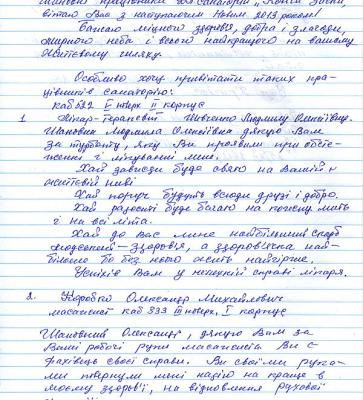 вітаю Вас з наступаючим Новим 2013 роком!
Бажаю міцного здоров'я, добра і злагоди,
мирного неба і всього найкращого на вашому
життєвому шляху.
Особливо хочу привітати таких пра-
цівників санаторію:
каб 532 I поверх II корпус
1 Лікар-терапевт Шевченко Людмилу Олексіївну.
Шановна Людмила Олексіївна дякую Вам
за турботу, яку Ви проявили при обсте-
женні і лікуванні мене.
Хай завжди буде свято на Вашій
життєвій ниві
Хай поруч будуть всюди друзі і добро.
Хай радості буде багато на кожну мить
і на всі літа.
Хай до Вас лине найбільший скарб
людський – здоров'я, а здоров'ячка най-
більше бо без нього жить найгірше.
Успіхів Вам у нелегкій справі лікаря.
2. Коробко Олександр Михайлович
масажист каб 333 III поверх, I корпус
Шановний Олександр, дякую Вам за
Ваші робочі руки масажиста Ви є
фахівець своєї справи. Ви своїми рука-
ми повернули мені надію на краще в
моєму здоров'ї, на відновлення рухової